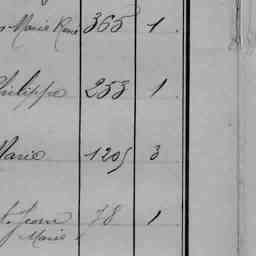 Marie René 365 1
Philippe 253 1
Marie 1205 3
Jean 78 1
Marie